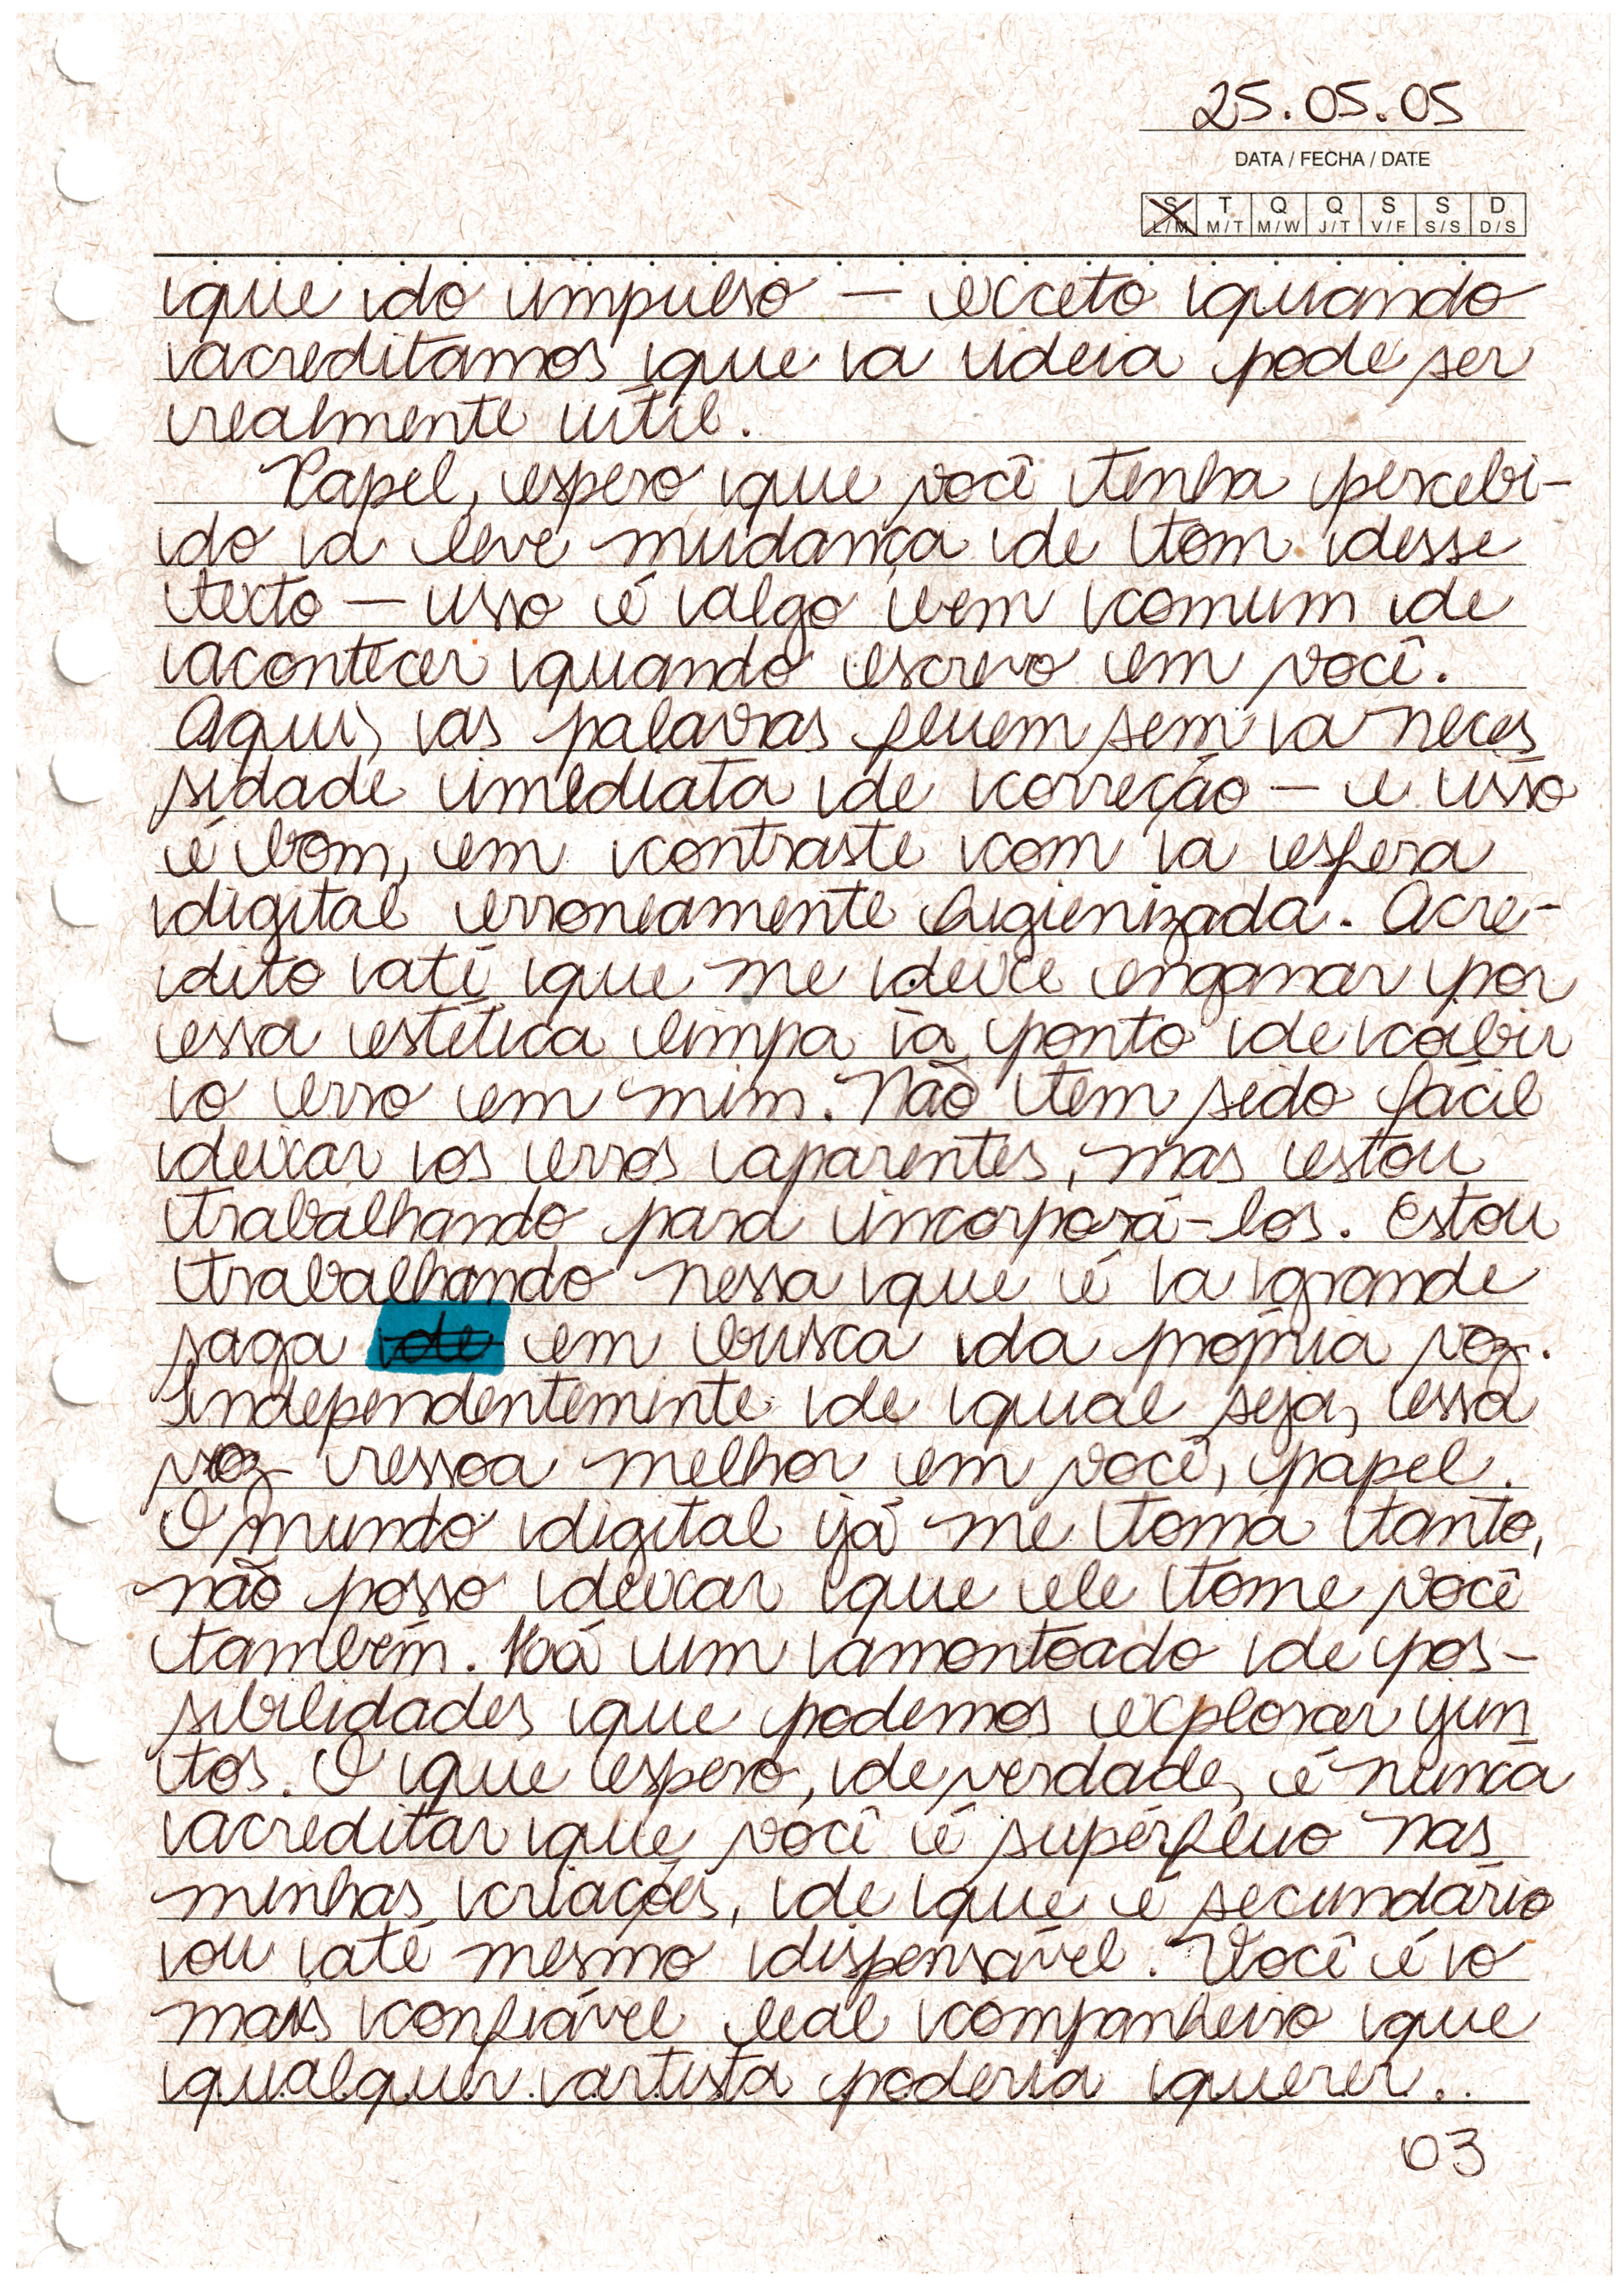 25.05.05
DATA / FECHA / DATE
S T Q Q S S D
L/M M/T M/W J/T V/F S/S D/S
que do impulso — exceto quando
acreditamos que a ideia pode ser
realmente útil.
Papel, espero que você tenha percebi-
do a leve mudança de tom desse
texto — isso é algo bem comum de
acontecer quando escrevo em você.
Aqui, as palavras fluem sem a neces
sidade imediata de correção — e isso
é bom, em contraste com a esfera
digital erroneamente higienizada. Acre-
dito até que me deixe enganar por
essa estética limpa a ponto de coibir
o erro em mim. Não tem sido fácil
deixar os erros aparentes, mas estou
trabalhando para incorporá-los. Estou
trabalhando nessa que é a grande
saga de em busca da própria voz.
Independentemente de qual seja, essa
voz ressoa melhor em você, papel.
O mundo digital já me toma tanto,
não posso deixar que ele tome você
também. Há um amontoado de pos-
sibilidades que podemos explorar jun
tos. O que espero, de verdade, é nunca
acreditar que você é supérfluo nas
minhas criações, de que é secundário
ou até mesmo dispensável. Você é o
mais confiável leal companheiro que
qualquer artista poderia querer..
03